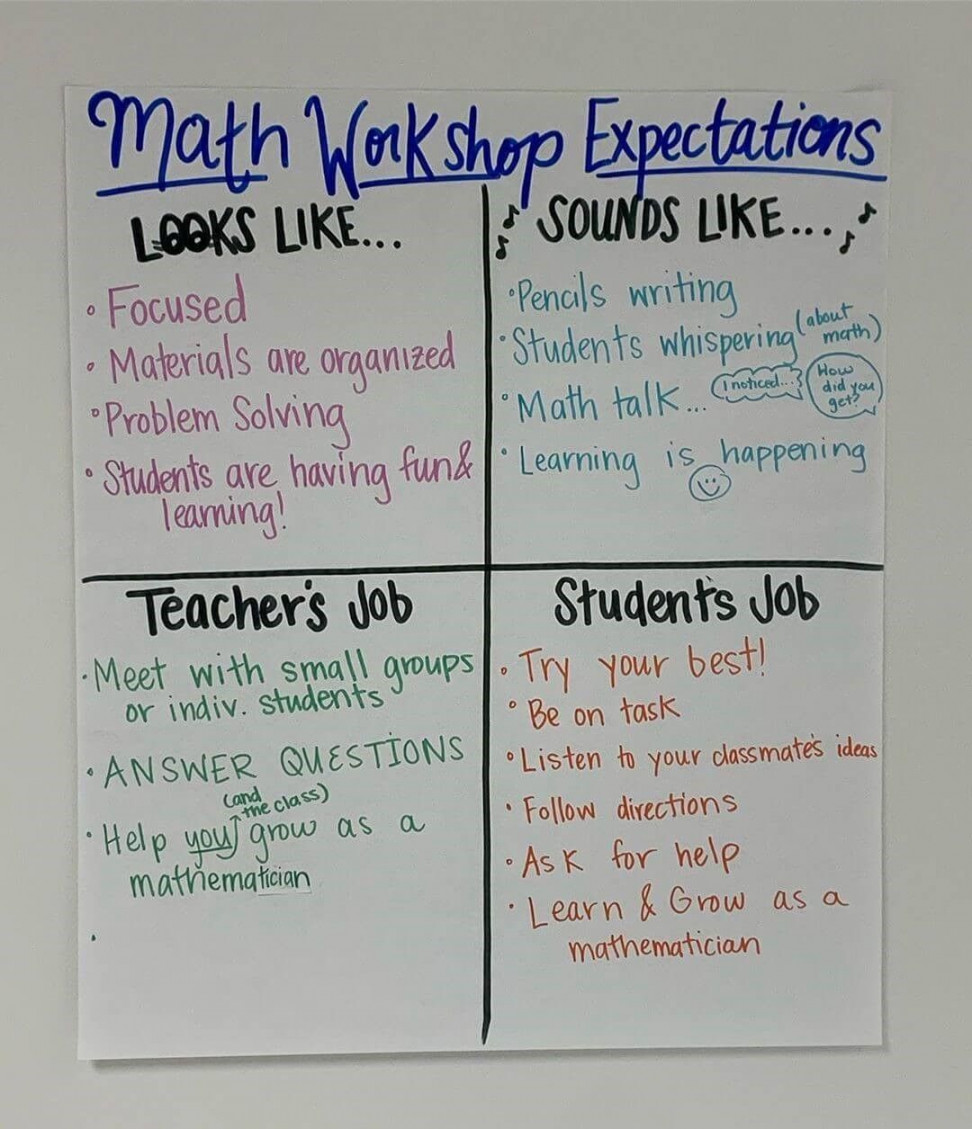 Math Workshop Expectations
LOOKS LIKE...
• Focused
• Materials are organized
• Problem Solving
• Students are having fun &
learning!
SOUNDS LIKE...
• Pencils writing
• Students whispering (about
math)
• Math talk... I noticed... How
did you
get?
• Learning is happening
Teacher's Job
• Meet with small groups
or indiv. students
• ANSWER QUESTIONS
(and
the class)
• Help you grow as a
mathematician
•
Student's Job
• Try your best!
• Be on task
• Listen to your classmate's ideas
• Follow directions
• Ask for help
• Learn & Grow as a
mathematician